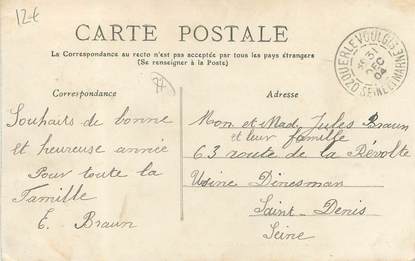 12 €
CARTE POSTALE
La Correspondance au recto n'est pas acceptée par tous les pays étrangers
(Se renseigner à la Poste)
Correspondance
Adresse
Souhaits de bonne
et heureuse année
Pour toute la
Famille
E. Braun
Mon et Mad. Jules Braun
et leur famille
63 route de la Révolte
Usine Dinesman
Saint-Denis
Seine
31
DEC
04
SEINE ET MARNE